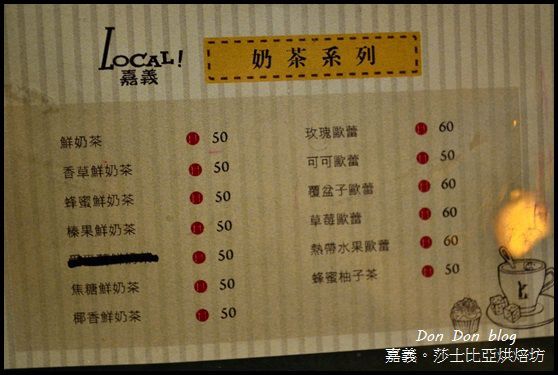 LOCAL!
嘉義
奶茶系列
鮮奶茶 50
香草鮮奶茶 50
蜂蜜鮮奶茶 50
榛果鮮奶茶 50
50
焦糖鮮奶茶 50
椰香鮮奶茶 50
玫瑰歐蕾 60
可可歐蕾 50
覆盆子歐蕾 60
草莓歐蕾 60
熱帶水果歐蕾 60
蜂蜜柚子茶 50
Don Don blog
嘉義。莎士比亞烘焙坊